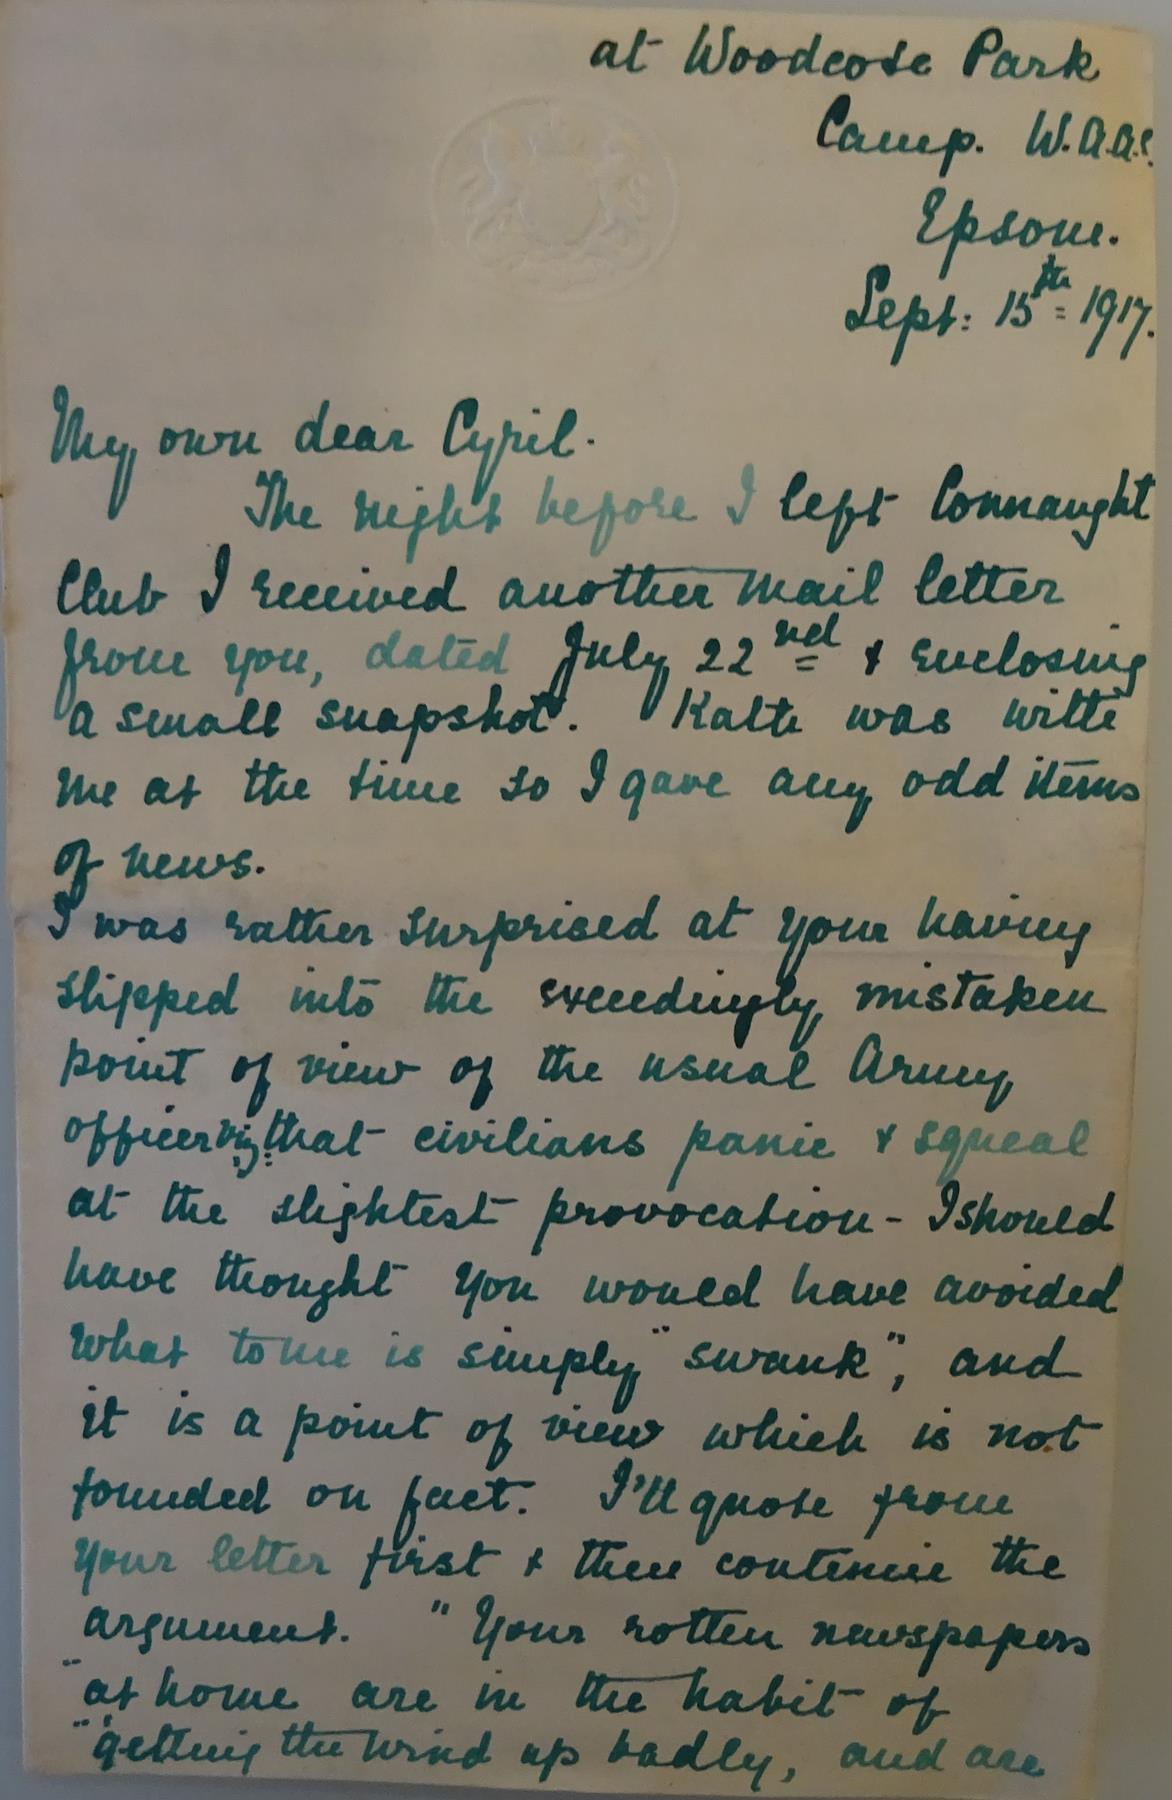 at Woodcote Park
Camp. W.A.A.C.
Epsom.
Sept: 15th 1917.
My own dear Cyril.
The night before I left Connaught
Club I received another mail letter
from you, dated July 22nd & enclosing
a small snapshot. Kath was with
me at the time so I gave any odd items
of news.
I was rather surprised at your having
slipped into the exceedingly mistaken
point of view of the usual Army
officer viz: that civilians panic & squeal
at the slightest provocation - I should
have thought you would have avoided
what to me is simply "swank", and
it is a point of view which is not
founded on fact. I'll quote from
your letter first & then continue the
argument. "Your rotten newspapers
"at home are in the habit of
"getting the wind up badly, and are